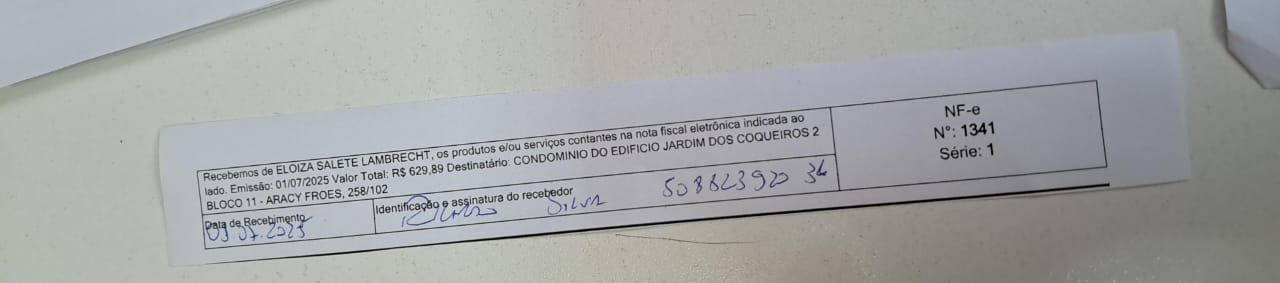 Recebemos de ELOIZA SALETE LAMBRECHT, os produtos e/ou serviços contantes na nota fiscal eletrônica indicada ao
lado. Emissão: 01/07/2025 Valor Total: R$ 629,89 Destinatário: CONDOMINIO DO EDIFICIO JARDIM DOS COQUEIROS 2
BLOCO 11 - ARACY FROES, 258/102
NF-e
Nº: 1341
Série: 1
Data de Recebimento
Identificação e assinatura do recebedor
Silva 508823920 34